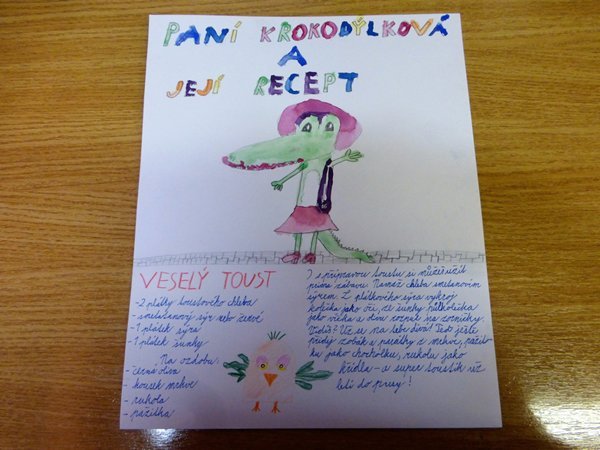 PANÍ KROKODÝLKOVÁ
A
JEJÍ RECEPT
VESELÝ TOUST
- 2 plátky toustového chleba
- smetanový sýr nebo žervé
- 1 plátek sýra
- 1 plátek šunky
Na ozdobu:
- černá oliva
- kousek mrkve
- rukola
- pažitka
I s přípravou toustu si můžeš užít
psina zábavu. Namaž chleba smetanovým
sýrem. Z plátkového sýra vykroj
kolečka jako oči, ze šunky půlkolečka
jako víčka a olivu rozpul na zorničky.
Vidíš? Už se na tebe dívá! Teď ještě
přidej zobák a pařátky z mrkve, pažit-
ku jako chocholku, rukolu jako
křídla - a super toustík už
letí do pusy!